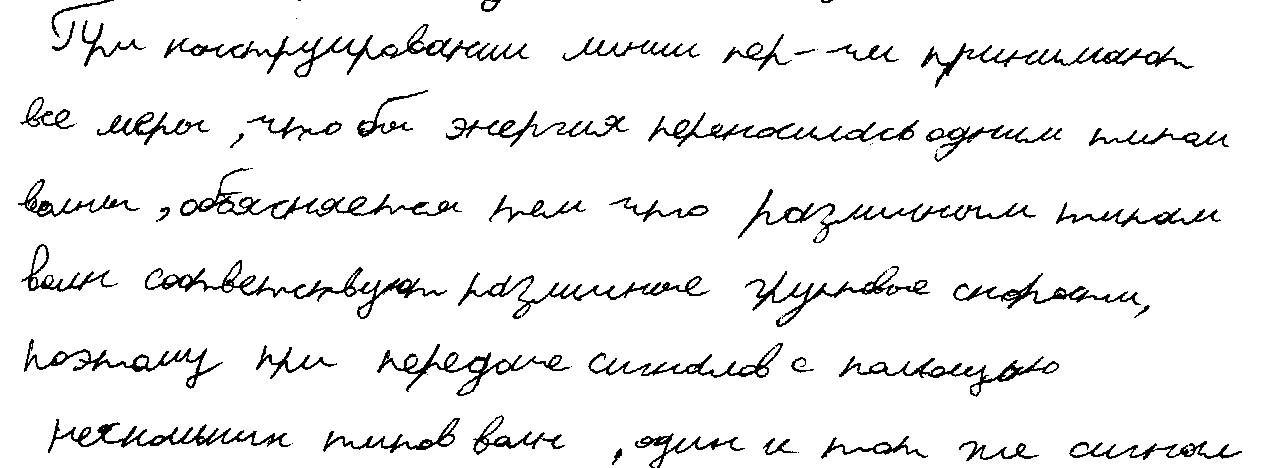 При конструировании линии пер-чи принимают
все меры, чтобы энергия переносилась одним типом
волны, объясняется тем что различным типам
волн соответствуют различные групповые скорости,
поэтому при передаче сигналов с помощью
нескольких типов волн, один и тот же сигнал